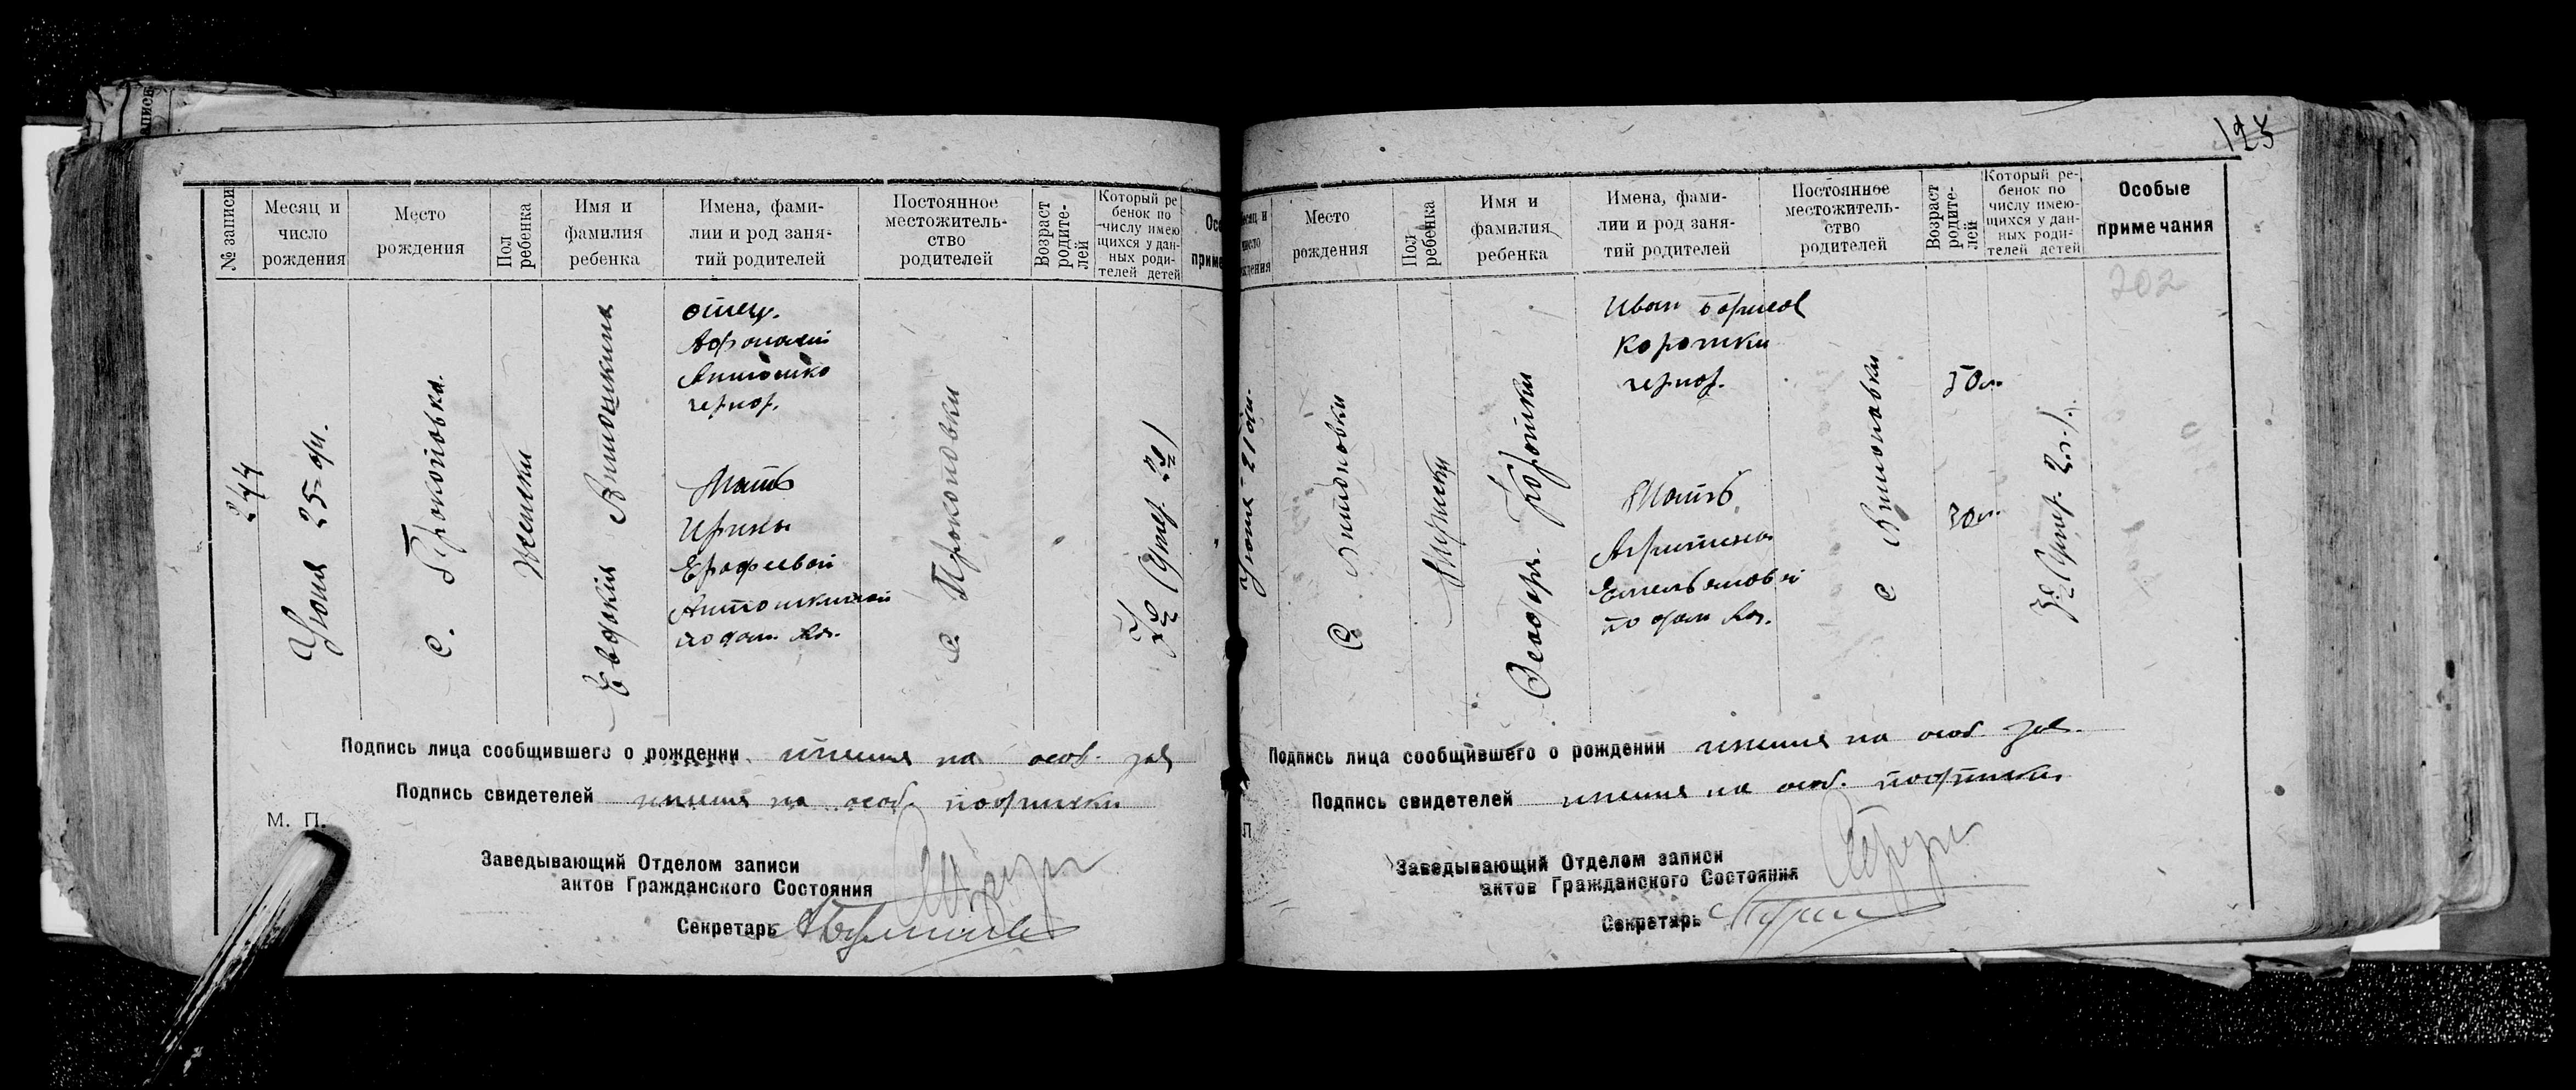 апись
№ записи
Месяц и
число
рождения
Место
рождения
Пол
ребенка
Имя и
фамилия
ребенка
Имена, фами-
лии и род заня-
тий родителей
Постоянное
местожитель-
ство
родителей
Возраст
родите-
лей
Который ре
бенок по
числу имею
щихся у дан-
ных роди-
телей детей
Осо
приме
244
Июня 25-дн.
с. Прокоповка.
Женски
Евдокия Антошкина
отец.
Афонасий
Антошко
чернор.
Мать
Ирины
Ерофеевой
Антошкиной
по дом. хоз.
с. Прокоповки
(умер. 2)
Подпись лица сообщившего о рождении имется на особ. зая
Подпись свидетелей имется на особ. подписки
М. П.
Заведывающий Отделом записи
актов Гражданского Состояния
Секретарь
123
есяц и
число
ождения
Место
рождения
Пол
ребенка
Имя и
фамилия
ребенка
Имена, фами-
лии и род заня-
тий родителей
Постоянное
местожитель-
ство
родителей
Возраст
родите-
лей
Который ре-
бенок по
числу имею-
щихся у дан-
ных роди-
телей детей
Особые
примечания
202
Июня - 21 дн.
с. Антоновки
Мужски
Феодор. Коротки
Иван Борисов
Коротки
чернор.
Мать
Агрипина
Емельяновой
по дом хоз.
с Антоновки
50 л.
30 л.
3 (умер. 2.)
Подпись лица сообщившего о рождении имется на особ. зая.
Подпись свидетелей имется на особ. подписки
П
Заведывающий Отделом записи
актов Гражданского Состояния
Секретарь